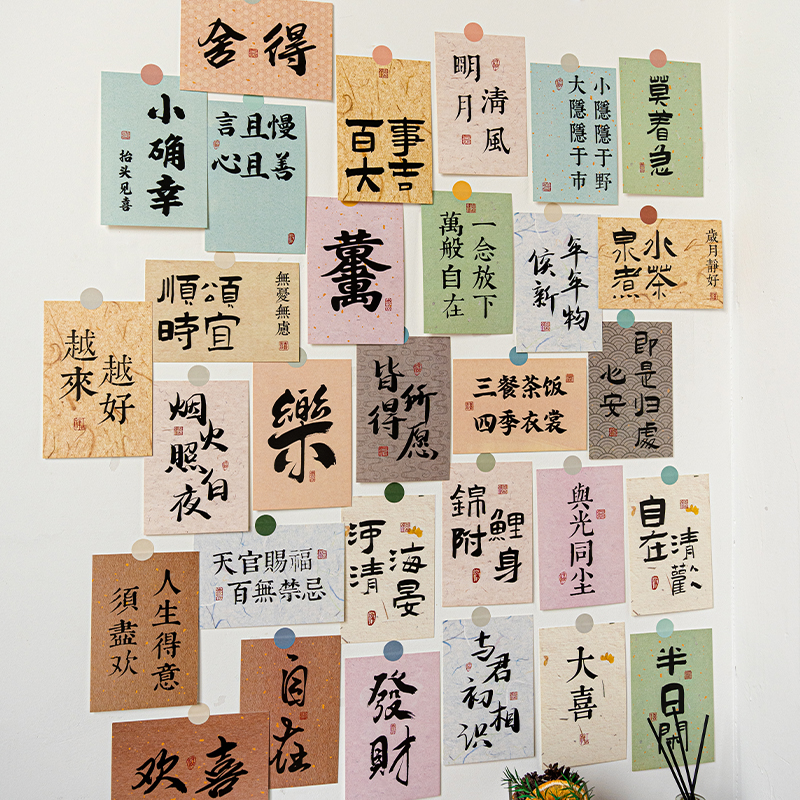 舍得
小确幸
抬头见喜
言且慢
心且善
百事
大吉
明月
清風
小隱隱于野
大隱隱于市
莫着急
順頌
時宜
無憂無慮
一念放下
萬般自在
年年物
候新
泉水
煮茶
歲月靜好
越來
越好
烟火
照夜白
樂
所愿
皆得
三餐茶饭
四季衣裳
心安
即是归處
天官賜福
百無禁忌
河清
海晏
錦鯉
附身
與光同尘
自在
清歡
人生得意
須盡欢
自在
發財
与君
初相识
大喜
半日閑
欢喜